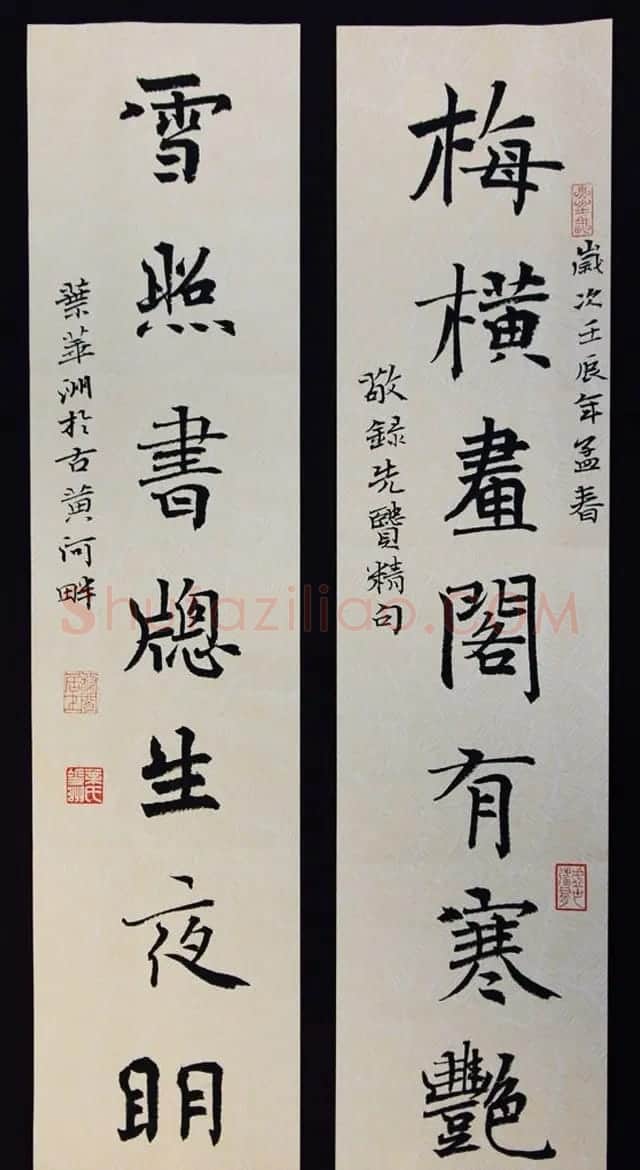 歲次壬辰年孟春
梅橫畫閣有寒艷
敬錄先賢精句
雪照書牕生夜眀
葉洲於古黃河畔
Shufaziliao.COM